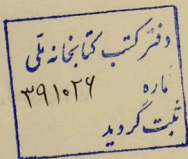 دفتر کتب کتابخانه ملی
ماره ۳۹۱۰۲۶
ثبت گردید